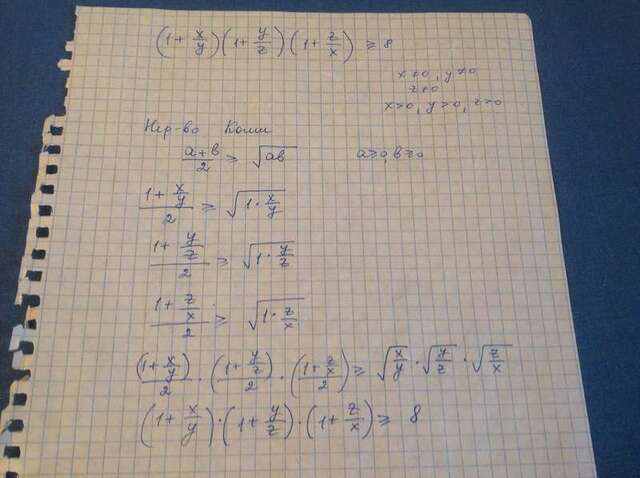 (1 + x/y)(1 + y/z)(1 + z/x) ≥ 8
x ≠ 0, y ≠ 0
z ≠ 0
x > 0, y > 0, z > 0
Нер-во Коши
(a + b)/2 ≥ √(ab) a ≥ 0, b ≥ 0
(1 + x/y)/2 ≥ √(1 · x/y)
(1 + y/z)/2 ≥ √(1 · y/z)
(1 + z/x)/2 ≥ √(1 · z/x)
(1 + x/y)/2 · (1 + y/z)/2 · (1 + z/x)/2 ≥ √(x/y) · √(y/z) · √(z/x)
(1 + x/y) · (1 + y/z) · (1 + z/x) ≥ 8